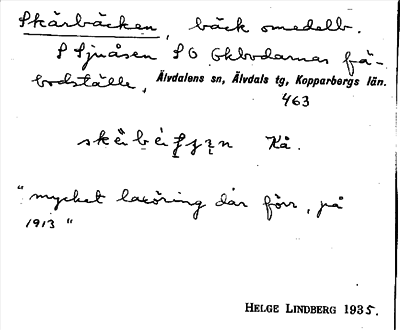 Skärbäcken, bäck omedelb.
S Sjuåsen SO Gkbodarnas fä-
bodställe, Älvdalens sn, Älvdals tg, Kopparbergs län.
463
Kå.
"mycket laxöring där förr, på
1913"
HELGE LINDBERG 1935.